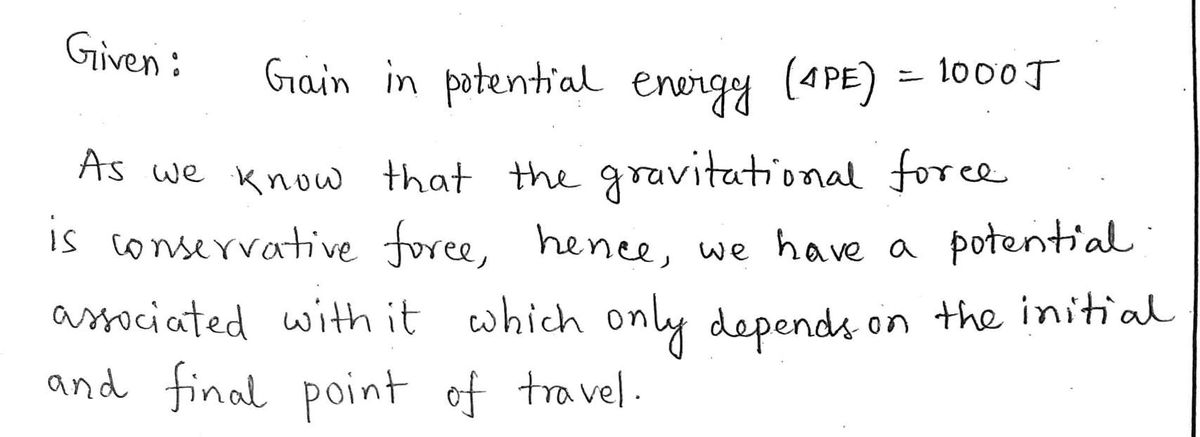 Given: Gain in potential energy (ΔPE) = 1000J
As we know that the gravitational force
is conservative force, hence, we have a potential
associated with it which only depends on the initial
and final point of travel.